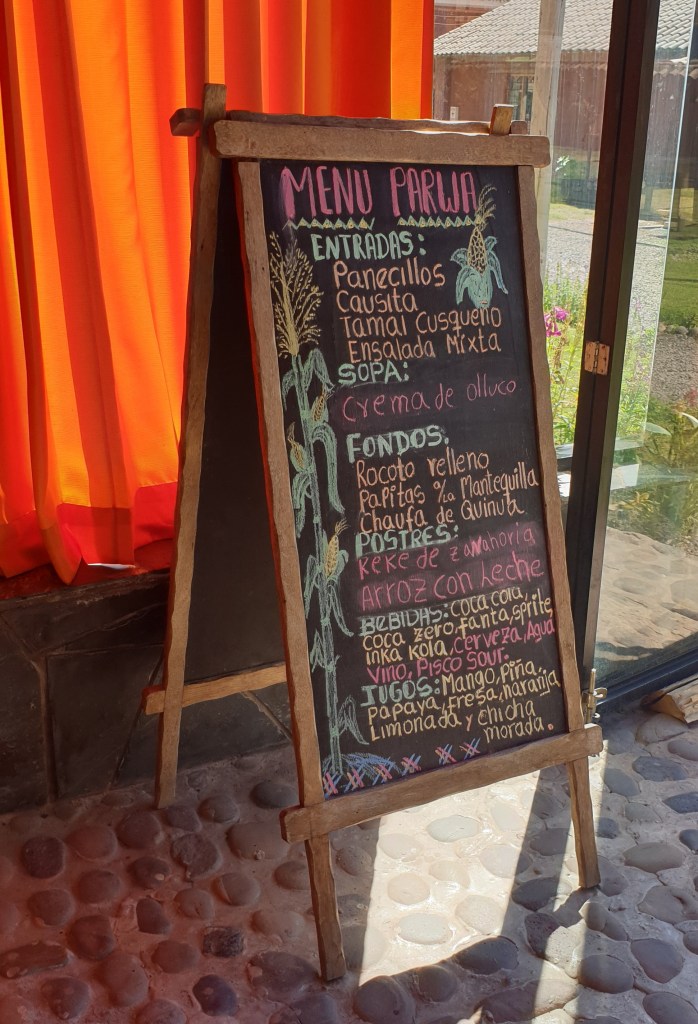 MENU PARWA
ENTRADAS:
Panecillos
Causita
Tamal Cusqueño
Ensalada Mixta
SOPA:
Crema de olluco
FONDOS.
Rocoto relleno
Papitas %a Mantequilla
Chaufa de Quinua
POSTRES:
Keke de Zanahoria
Arroz con Leche
BEBIDAS: coca cola,
coca zero, fanta, sprite
inka kola, cerveza, Agua
vino, Pisco Sour.
JUGOS: Mango, piña,
papaya, fresa, naranja
Limonada y chicha
morada.